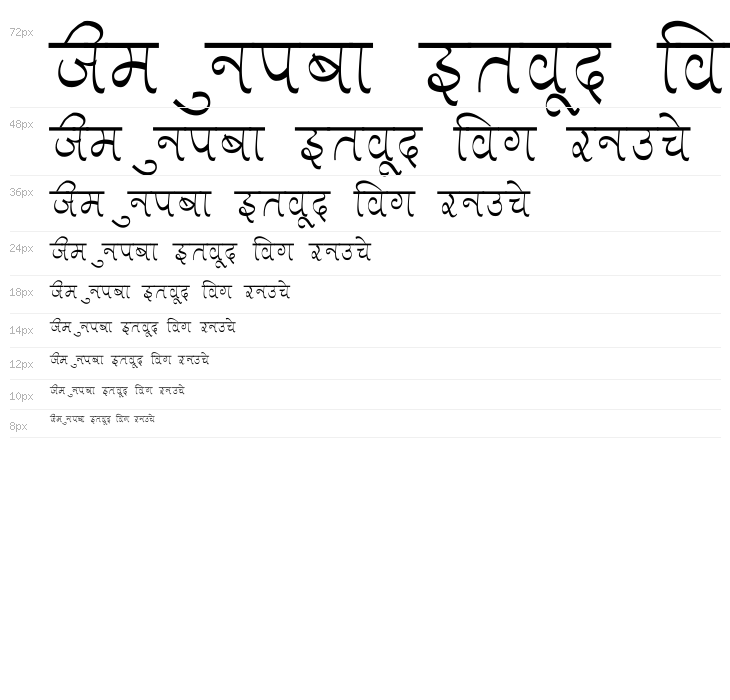 72px जिम ुनपबा इतवूद वि
48px जिम ुनपबा इतवूद विग रनउचे
36px जिम ुनपबा इतवूद विग रनउचे
24px जिम ुनपबा इतवूद विग रनउचे
18px जिम ुनपबा इतवूद विग रनउचे
14px जिम ुनपबा इतवूद विग रनउचे
12px जिम ुनपबा इतवूद विग रनउचे
10px जिम ुनपबा इतवूद विग रनउचे
8px जिम ुनपबा इतवूद विग रनउचे